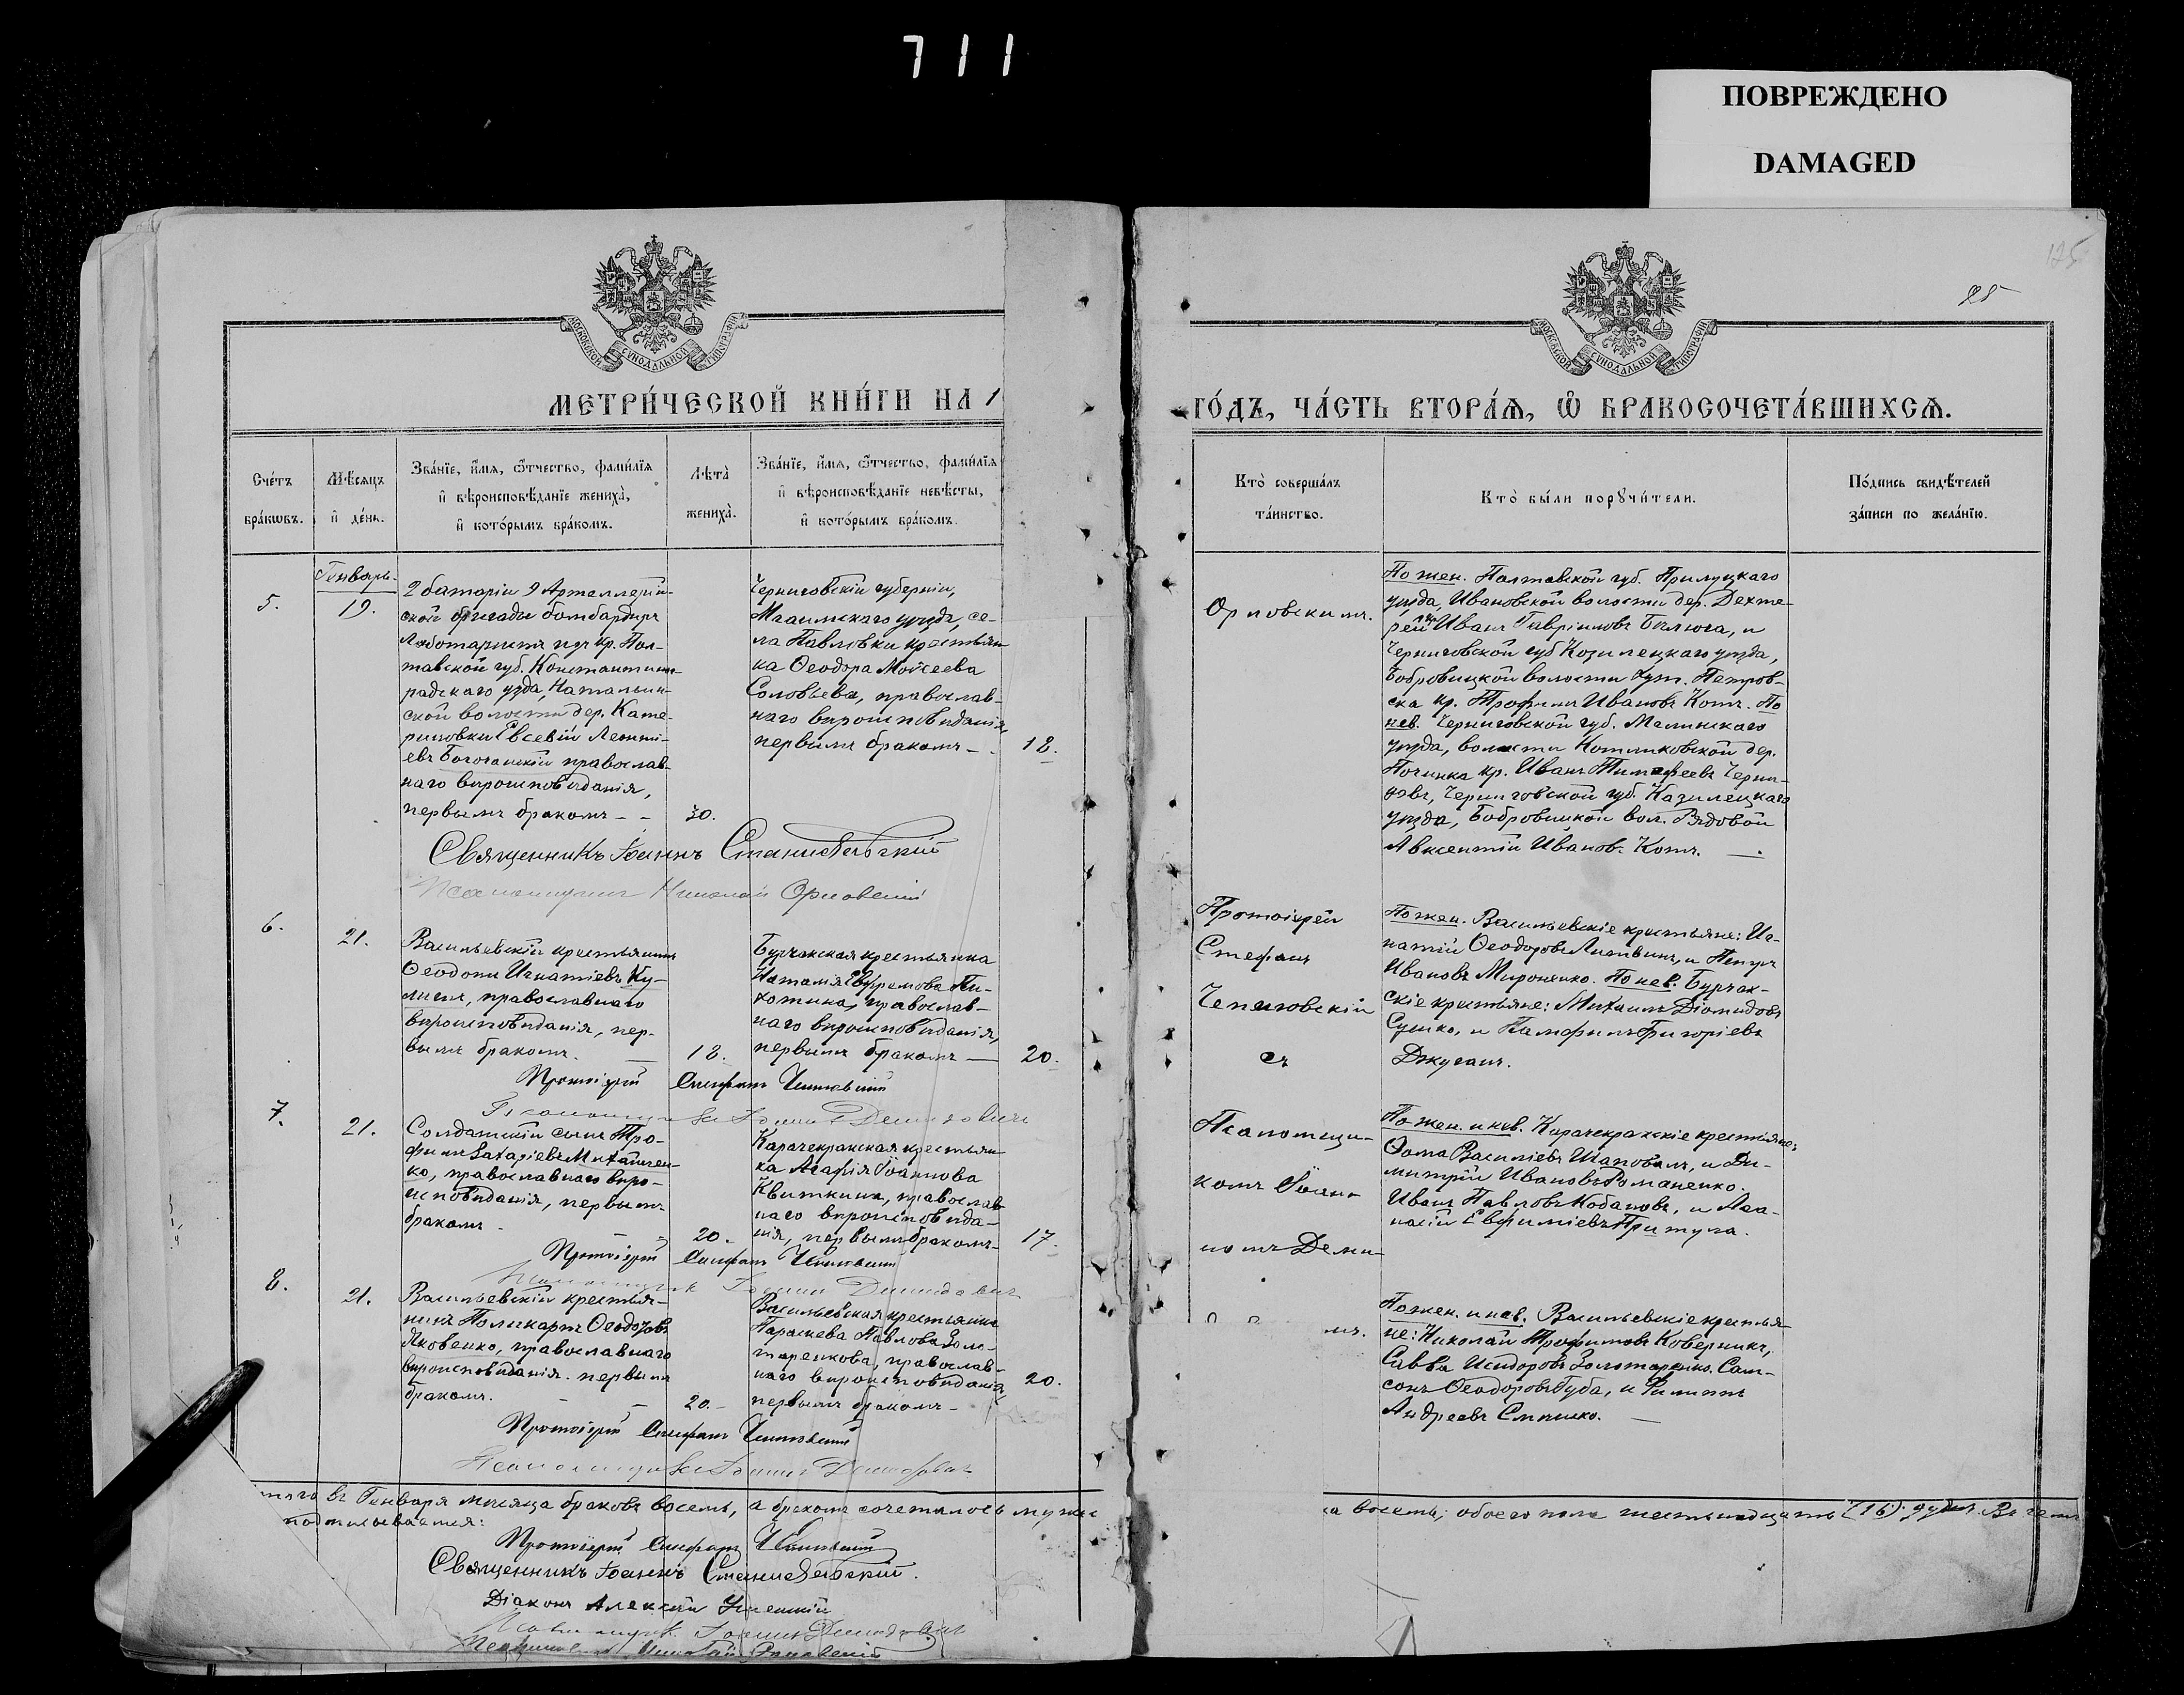 711
ПОВРЕЖДЕНО
DAMAGED
125
25
МОСКОВСКОЙ СУНОДАЛЬНОЙ ТИПОГРАФІИ
МОСКОВСКОЙ СУНОДАЛЬНОЙ ТИПОГРАФІИ
МЕТРИ́ЧЕСКОЙ КНИ́ГИ НА 1
ГО́ДЪ, ЧА́СТЬ ВТОРА́Ѧ, Ѽ БРАКОСОЧЕТА́ВШИХСѦ.
Сче́тъ
бра́кѡвъ.
Мѣ́сяцъ
и҆ де́нь.
Зва́нїе, и҆́мѧ, ѻ҆́тчество, фами́лїѧ
и҆ вѣроисповѣ́данїе жениха̀,
и҆ кото́рымъ бра́комъ.
Лѣта̀
жениха̀.
Зва́нїе, и҆́мѧ, ѻ҆́тчество, фами́лїѧ
и҆ вѣроисповѣ́данїе невѣ́сты,
и҆ кото́рымъ бра́комъ.
Кто̀ соверша́лъ
та́инство.
Кто̀ бы́ли порꙋчи́тели.
По́дпись свидѣ́телей
за́писи по жела́нїю.
5.
Генварь.
19.
2 батаріи 9 Артеллерій-
ской бригады бомбардиръ
Лаботаристъ изъ кр. Пол-
тавской губ. Константино-
радскаго уѣзда, Натальин-
ской волости дер. Кате-
риновки Евсевій Леонті-
евъ Богочанскій православ-
наго вѣроисповѣданія,
первымъ бракомъ - -
30.
Черниговскій губерніи,
Мглинскаго уѣзда, се-
ла Павловки крестьян-
ка Ѳеодора Моисеева
Соловьева, православ-
наго вѣроисповѣданія,
первымъ бракомъ -
18.
Орловскимъ.
По жен. Полтавской губ. Прилуцкаго
уѣзда, Ивановской волости дер. Дехте-
рей Иванъ Гавріиловъ Билюга, и
Черниговской губ Козилецкаго уѣзда,
Бобровицкой волости хут. Петров-
ска кр. Трофимъ Ивановъ Котъ. По
нев. Черниговской губ. Малинскаго
уѣзда, волости Котляковской дер.
Починка кр. Иванъ Тимофеевъ Черни-
ковъ, Черниговской губ. Казилецкаго
уѣзда, Бобровицкой вол. Рядовой
Авксентій Ивановъ Котъ.
Священникъ Іоаннъ Станиславскій
Псаломщикъ Николай Орловскій
6.
21.
Васильевскій крестьянинъ
Ѳеодоръ Игнатіевъ Ку-
лишъ, православнаго
вѣроисповѣданія, пер-
вымъ бракомъ.
18.
Бурчакская крестьянка
Наталія Ефремова Ти-
хотина, православ-
наго вѣроисповѣданія,
первымъ бракомъ —
20.
Протоіерей
Стефанъ
Чепиговскій
съ
По жен. Васильевскіе крестьяне: Иг-
натій Ѳеодоровъ Литвинъ, и Петръ
Ивановъ Мироненко. По нев. Бурчак-
скіе крестьяне: Михаилъ Діомидовъ
Сушко, и Памфилъ Григоріевъ
Джуганъ.
Протоіерей Стефанъ Чепиговскій
Псаломщикъ Іоаннъ Демидовичъ
7.
21.
Солдатскій сынъ Тро-
фимъ Захаріевъ Михайлен-
ко, православнаго вѣро-
исповѣданія, первымъ
бракомъ -
20.
Карачекракская крестьян-
ка Агафія Іоаннова
Квиткина, православ-
наго вѣроисповѣда-
нія, первымъ бракомъ-
17.
Псаломщи-
комъ Іоан-
номъ Деми-
По жен. и нев. Карачекракскіе крестьяне:
Ѳома Василіевъ Шаповалъ, и Ди-
митрій Ивановъ Романенко.
Иванъ Павловъ Кобановъ, и Аѳа-
насій Евфиміевъ Притула.
Протоіерей Стефанъ Чепиговскій
Псаломщикъ Іоаннъ Демидовичъ
8.
21.
Васильевскій крестья-
нинъ Поликарпъ Ѳеодоровъ
Яковенко, православнаго
вѣроисповѣданія. первымъ
бракомъ.
20.-
Васильевская крестьянка
Параскева Павлова Золо-
таренкова, православ-
наго вѣроисповѣданія,
первымъ бракомъ -
20.
мъ.
По жен. и нев. Васильевскіе крестья-
не: Николай Трофимовъ Коверникъ,
Савва Исидоровъ Золотаренко. Сам-
сонъ Ѳеодоровъ Губа, и Филиппъ
Андреевъ Сташко.
Протоіерей Стефанъ Чепиговскій
Псаломщикъ Іоаннъ Демидовичъ
итого въ Генваря мѣсяца браковъ восемь, а бракомъ сочеталось мужес
ка восемь; обоего пола шестьнадцать (16) душъ. Въ чемъ
подписываемся:
Протоіерей Стефанъ Чепиговскій
Священникъ Іоаннъ Станиславскій.
Діаконъ Алексѣй
Псаломщикъ Іоаннъ Демидовичъ
Псаломщикъ Николай Орловскій